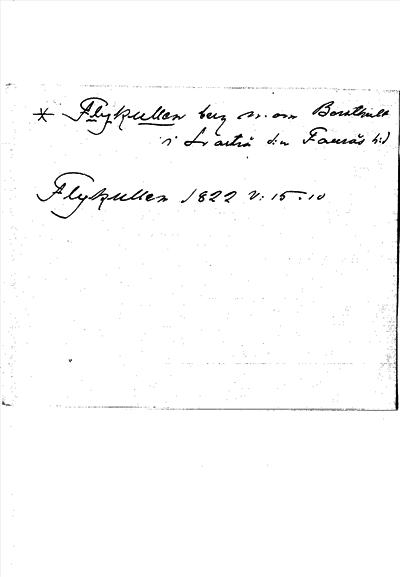 * Flykullen berg n. om Bossthult
i Svartrå s:n Faurås hd
Flykullen 1822 V: 15. 10